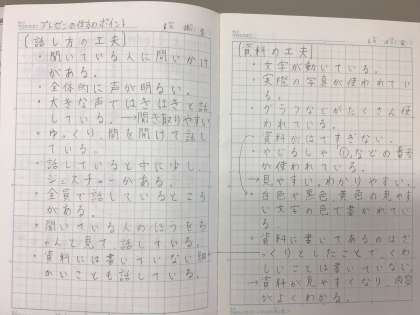 プレゼンの仕方のポイント
【話し方の工夫】
・聞いている人に問いかけ
がある。
・全体的に声が明るい。
・大きな声ではきはきと話
している。→聞き取りやすい
・ゆっくり、間を開けて話し
ている。
・話しているときに少し、
ジェスチャーがある。
・全員で話しているところ
がある。
・聞いている人のほうをち
ゃんと見て話している。
・資料には書いていない細
かいことも話している。
【資料の工夫】
・文字が動いている。
・実際の写真が使われてい
る。
・グラフなどがたくさん使
われている。
・資料がはですぎない。
・かじょうしや①、などの番号
が使われている。
→見やすい、わかりやすい。
・白色や黒色、黄色の見やす
い文字の色で書かれてい
る。
・資料に書いてあるのはざ
っくりとしたことで、くわ
しいことは書いていない。
→資料が見やすくなり、内容
がよくわかる。